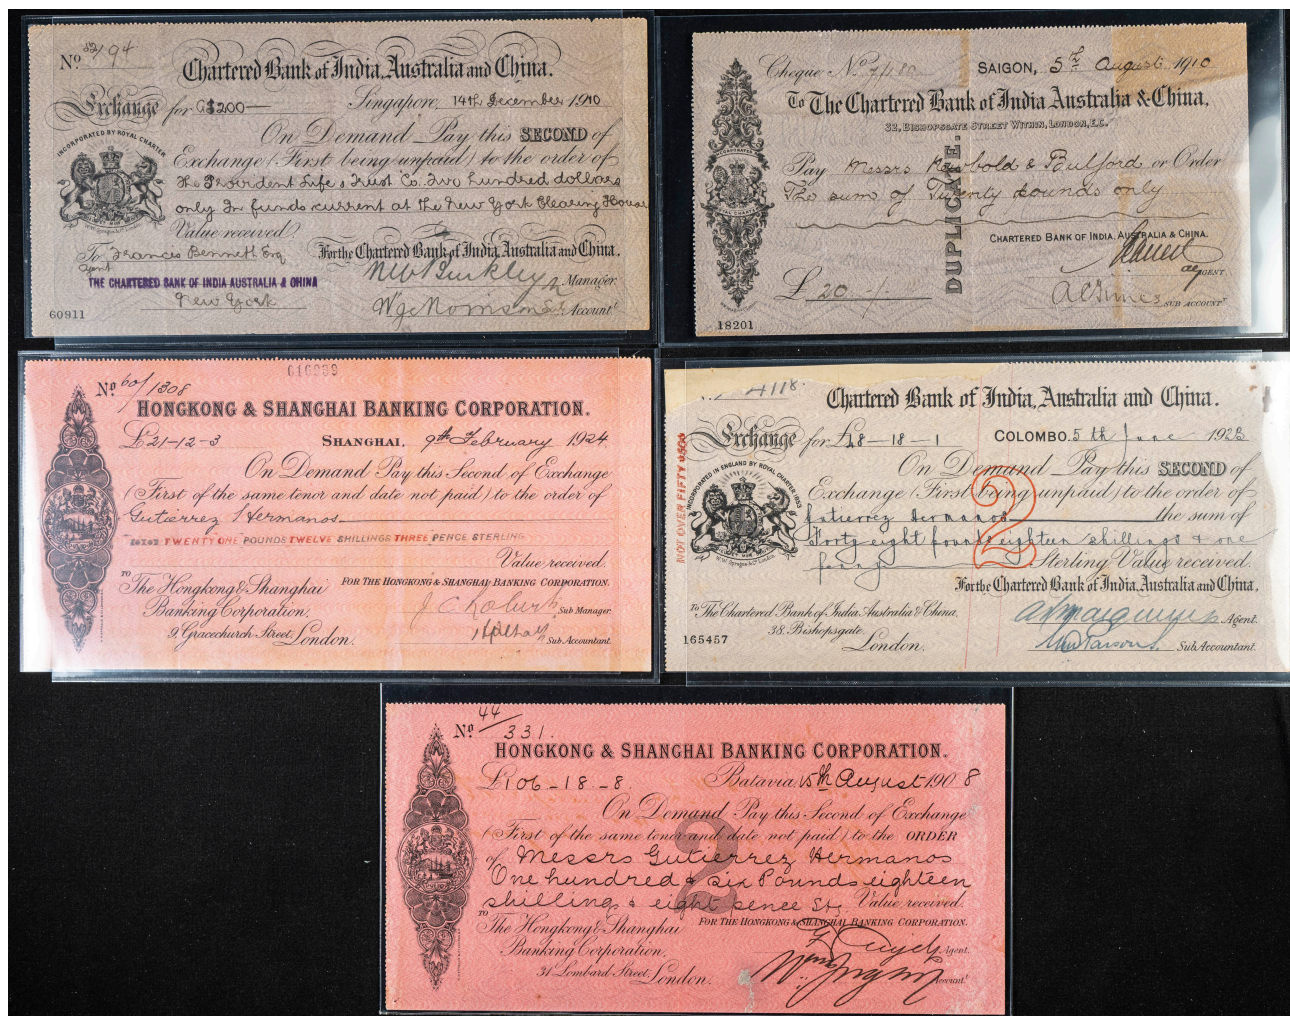 No 52/194
Chartered Bank of India, Australia and China.
Exchange for G$200— Singapore, 14th December 1910
INCORPORATED BY ROYAL CHARTER
On Demand Pay this SECOND of
Exchange (First being unpaid) to the order of
The Provident Life & Trust Co. Two hundred dollars
only In funds current at the New York Clearing House
Value received.
To Francis Bennett Esq For the Chartered Bank of India, Australia and China.
Agent
THE CHARTERED BANK OF INDIA AUSTRALIA & CHINA
Manager.
New York
Account.t
60911
Cheque No. SAIGON, 5th August 1910
To The Chartered Bank of India Australia & China,
32, BISHOPSGATE STREET WITHIN, LONDON, E.C.
Pay Messrs & Bulford or Order
The sum of Twenty pounds only
DUPLICATE.
CHARTERED BANK OF INDIA, AUSTRALIA & CHINA.
AGENT
£ 20 -/-
SUB ACCOUNT.t
18201
616939
No 60/1308
HONGKONG & SHANGHAI BANKING CORPORATION.
£21-12-3 SHANGHAI, 9th February 1924
On Demand Pay this Second of Exchange
(First of the same tenor and date not paid) to the order of
Gutierrez Hermanos
TWENTY ONE POUNDS TWELVE SHILLINGS THREE PENCE STERLING
Value received.
TO The Hongkong & Shanghai FOR THE HONGKONG & SHANGHAI BANKING CORPORATION.
Banking Corporation, Sub Manager.
9, Gracechurch Street, London. Sub Accountant.
4118.
Chartered Bank of India, Australia and China.
Exchange for £48-18-1 COLOMBO, 5th June 1923
NOT OVER FIFTY
INCORPORATED IN ENGLAND BY ROYAL CHARTER 1853
On Demand Pay this SECOND of
Exchange (First being unpaid) to the order of
2
Gutierrez Hermanos the sum of
Forty eight pounds eighteen shillings & one
penny Sterling Value received.
For the Chartered Bank of India, Australia and China,
To The Chartered Bank of India, Australia & China, Agent.
38, Bishopsgate,
165457 London. Sub Accountant.
No 44/331.
HONGKONG & SHANGHAI BANKING CORPORATION.
£106-18-8 Batavia, 15th August 1908
On Demand Pay this Second of Exchange
(First of the same tenor and date not paid) to the ORDER
2
of Messrs Gutierrez Hermanos
One hundred & six Pounds eighteen
shillings & eight pence Stg. Value received.
TO The Hongkong & Shanghai FOR THE HONGKONG & SHANGHAI BANKING CORPORATION.
Banking Corporation, Agent.
31 Lombard Street, London. Account.t